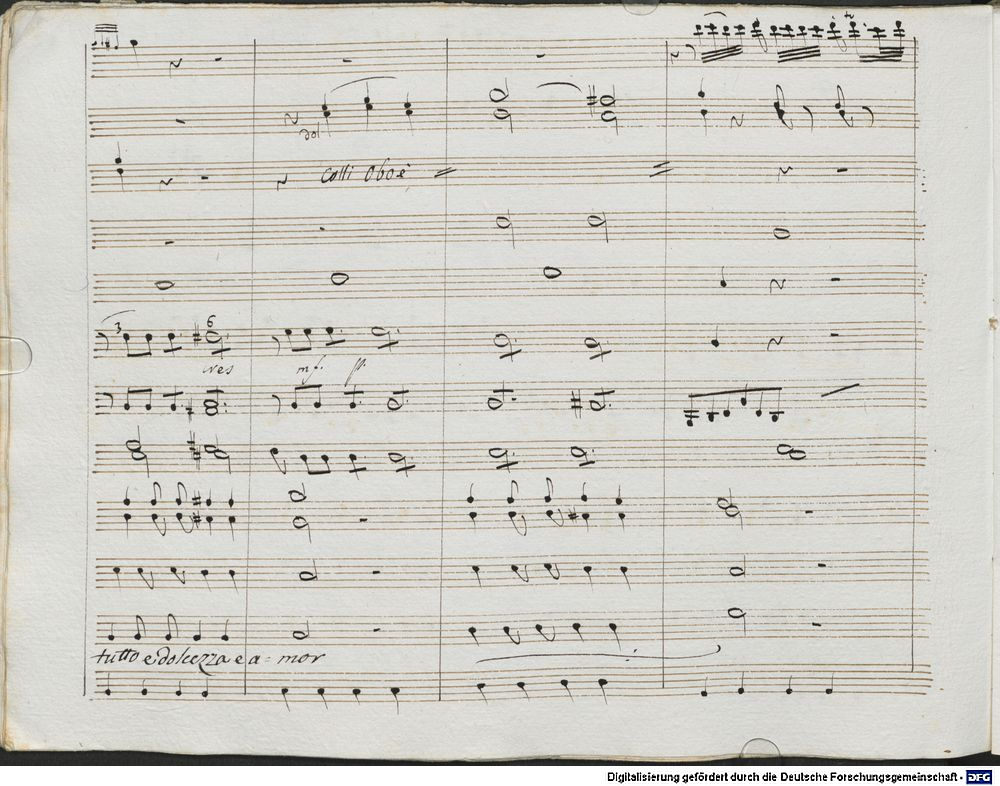 dol
colli Oboè
3 6
cres mf. p.
tutto e dolcezza e a = mor
Digitalisierung gefördert durch die Deutsche Forschungsgemeinschaft - DFG